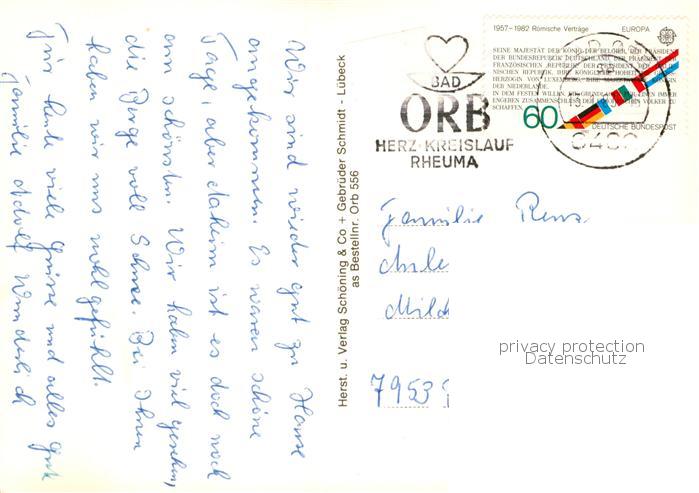 Wir sind wieder gut zu Hause
angekommen. Es waren schöne
Tage, aber daheim ist es doch noch
am schönsten. Wir haben viel gesehen,
die Berge voll Schnee. Bei Ihnen
haben wir uns wohlgefühlt.
Für heute viele Grüsse und alles Gute
Familie Adolf Wunderlich
Herst. u. Verlag Schöning & Co + Gebrüder Schmidt - Lübeck
as Bestellnr. Orb 556
BAD
ORB
HERZ-KREISLAUF
RHEUMA
1957–1982 Römische Verträge EUROPA
SEINE MAJESTÄT DER KÖNIG DER BELGIER, DER PRÄSIDENT
DER BUNDESREPUBLIK DEUTSCHLAND, DER PRÄSIDENT
FRANZÖSISCHEN REPUBLIK, DER PRÄSIDENT DER
NISCHEN REPUBLIK, IHRE KÖNIGLICHE HOHEIT
HERZOGIN VON LUXEMBURG, IHRE
DER NIEDERLANDE,
IN DEM FESTEN WILLEN, DIE GRUNDLAGEN IMMER
ENGEREN ZUSAMMENSCHLUSS DER VÖLKER ZU
SCHAFFEN,
60
DEUTSCHE BUNDESPOST
Familie Rens
Mild
7953
privacy protection
Datenschutz